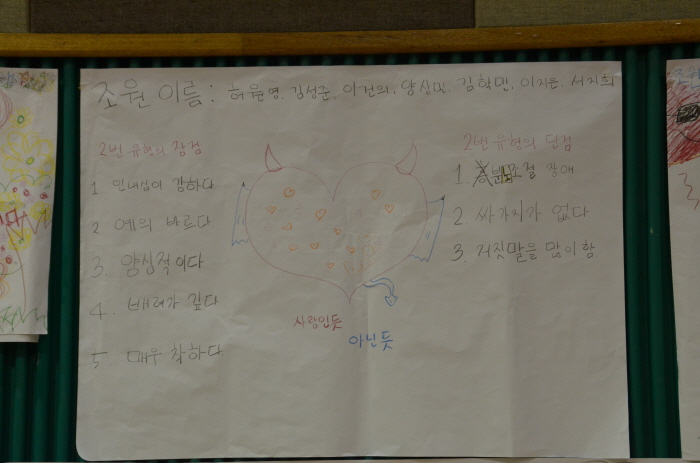 조원 이름: 허원영. 김성준, 이건의, 양심민, 김학민, 이지은, 서지희
2번 유형의 장점
1 인내심이 강하다
2 예의 바르다
3. 양심적이다
4. 배려가 깊다
5 매우 착하다
사랑인듯
아닌듯
2번 유형의 단점
1. 조절 장애
2 싸가지가 없다
3. 거짓말을 많이 함